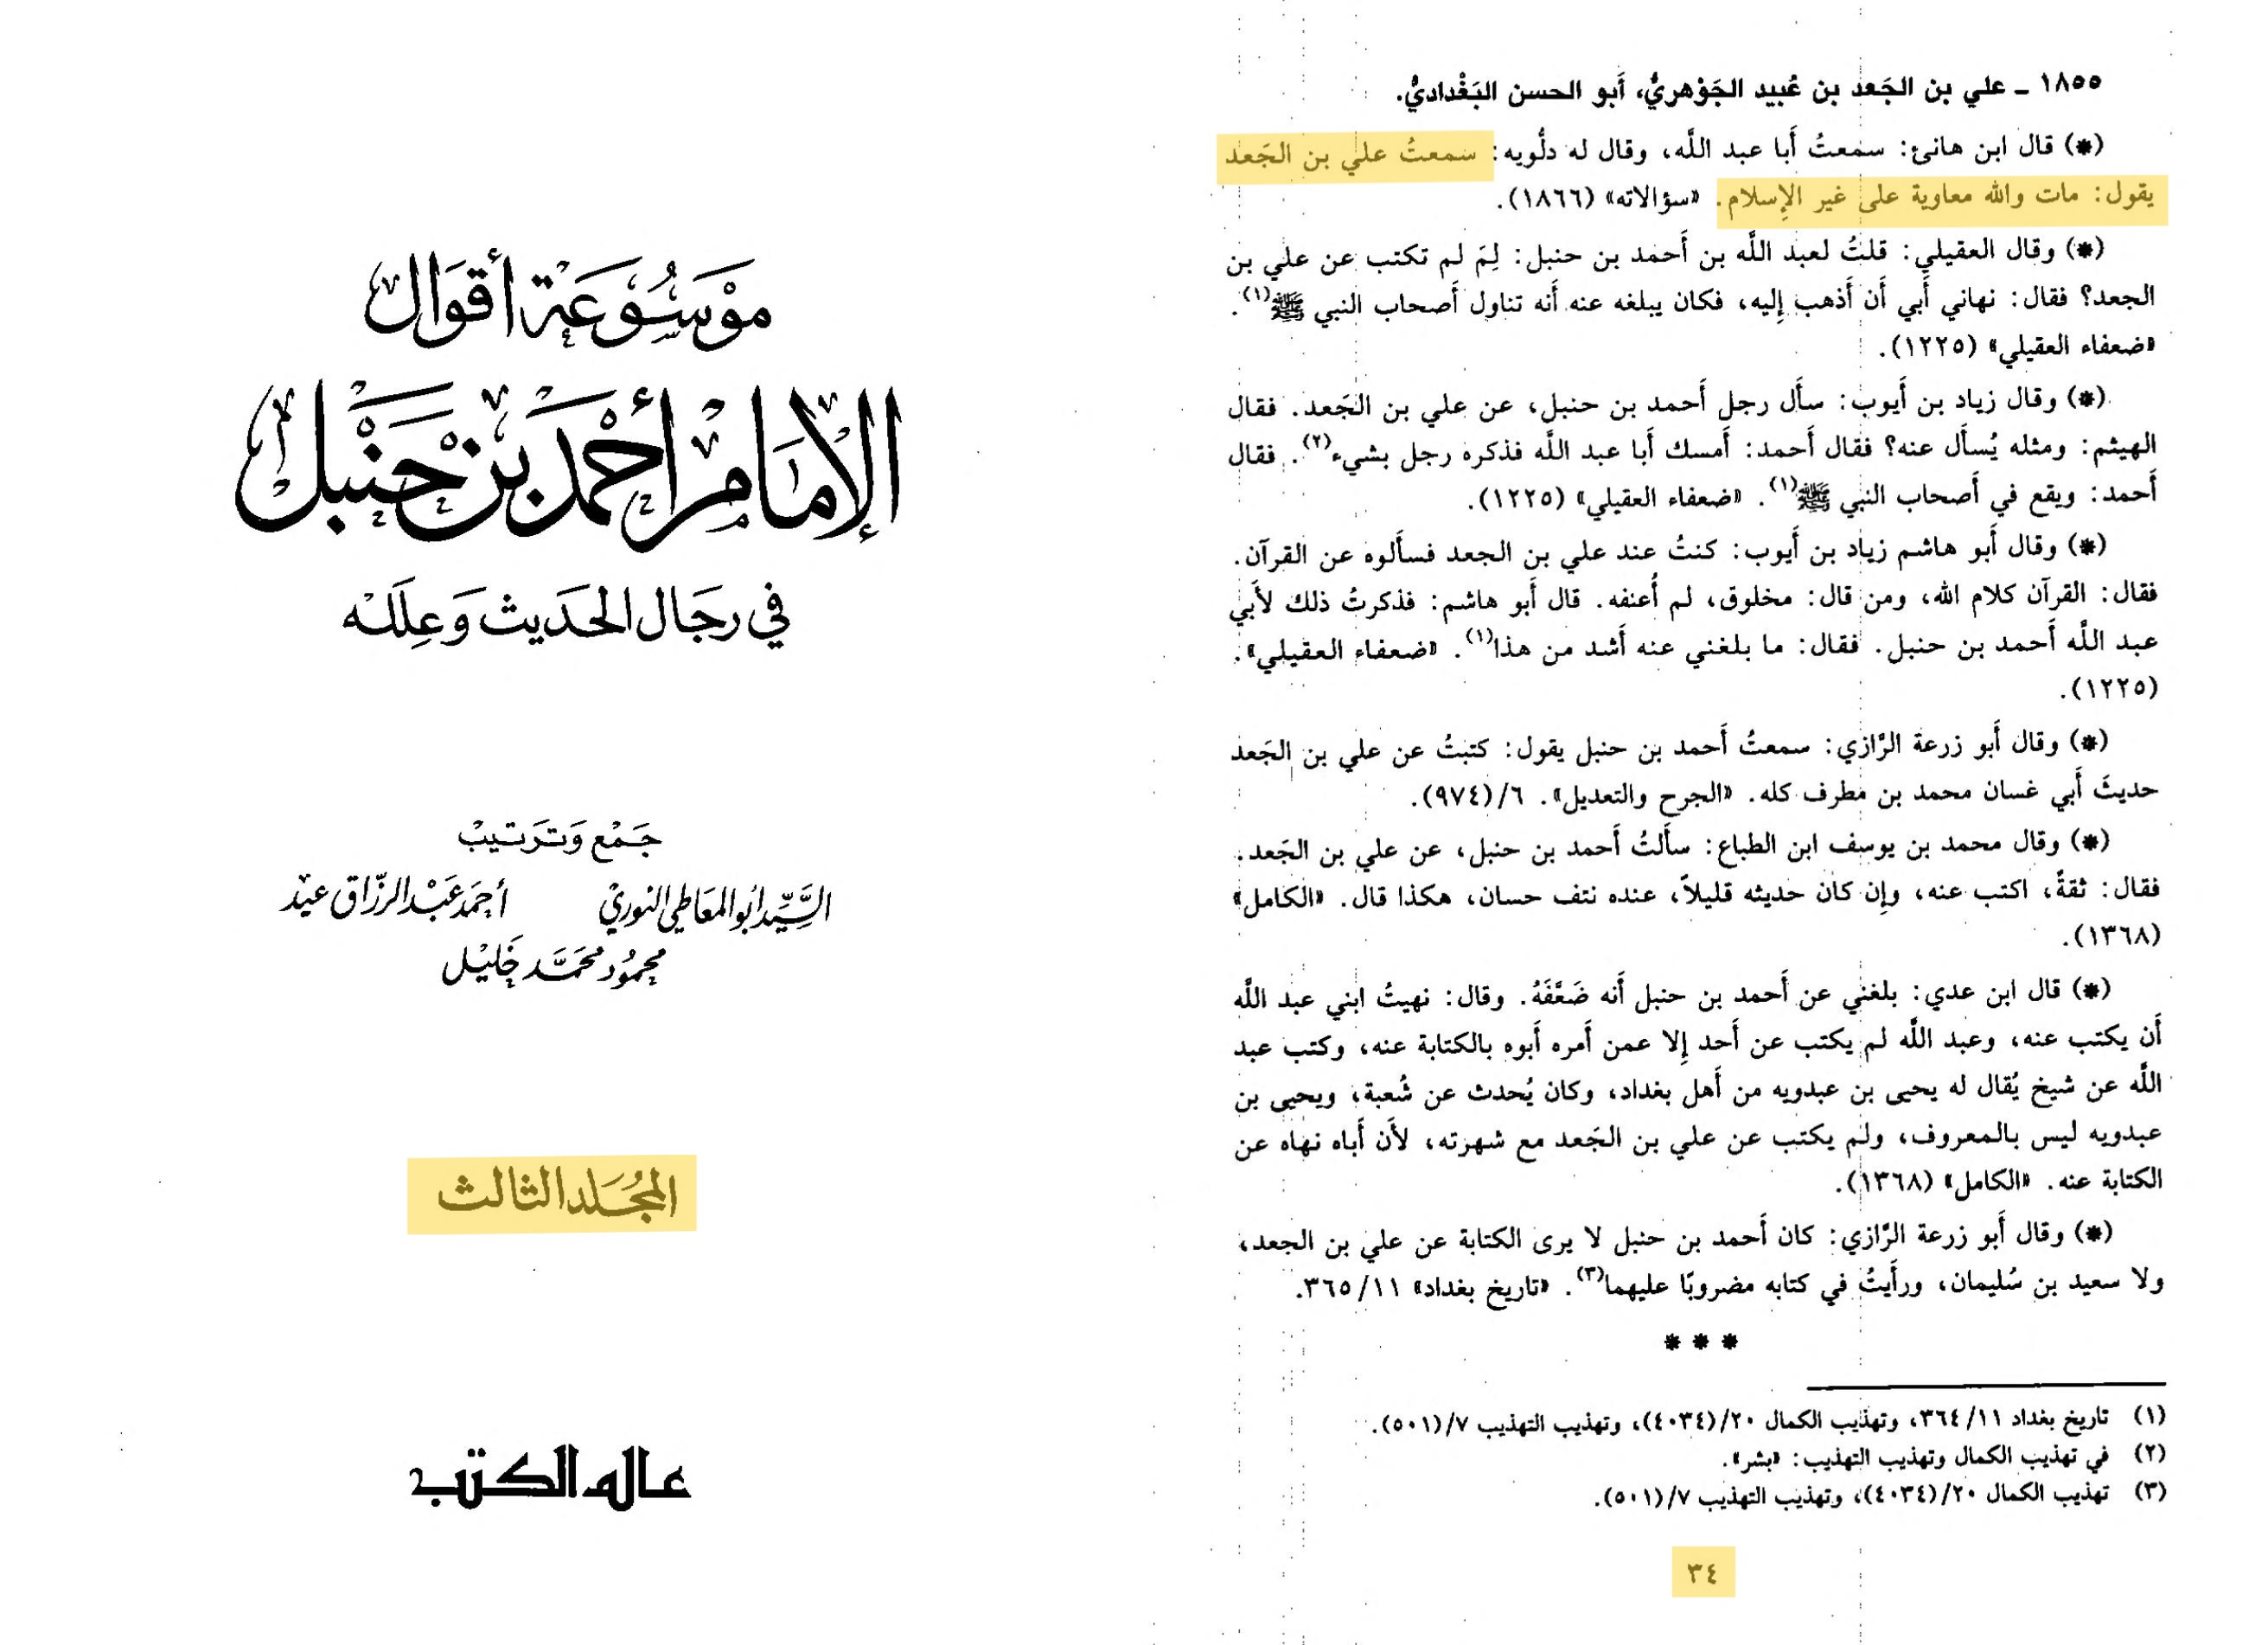 موسوعة أقوال
الإمام أحمد بن حنبل
في رجال الحديث وعلله
جمع وترتيب
السيد أبو المعاطي النوري أحمد عبد الرزاق عيد
محمود محمد خليل
المجلد الثالث
عالم الكتب
١٨٥٥ ـ علي بن الجَعد بن عُبيد الجَوْهريُّ، أَبو الحسن البَغْداديُّ.
(*) قال ابن هانئ: سمعتُ أَبا عبد اللَّه، وقال له دلُّويه: سمعتُ علي بن الجَعد
يقول: مات والله معاوية على غير الإِسلام. «سؤالاته» (١٨٦٦).
(*) وقال العقيلي: قلتُ لعبد اللَّه بن أَحمد بن حنبل: لِمَ لم تكتب عن علي بن
الجعد؟ فقال: نهاني أَبي أَن أَذهب إِليه، فكان يبلغه عنه أَنه تناول أَصحاب النبي ﷺ(١).
«ضعفاء العقيلي» (١٢٢٥).
(*) وقال زياد بن أَيوب: سأَل رجل أَحمد بن حنبل، عن علي بن الجَعد. فقال
الهيثم: ومثله يُسأَل عنه؟ فقال أَحمد: أَمسك أَبا عبد اللَّه فذكره رجل بشيء(٢). فقال
أَحمد: ويقع في أَصحاب النبي ﷺ(١). «ضعفاء العقيلي» (١٢٢٥).
(*) وقال أَبو هاشم زياد بن أَيوب: كنتُ عند علي بن الجعد فسأَلوه عن القرآن.
فقال: القرآن كلام الله، ومن قال: مخلوق، لم أُعنفه. قال أَبو هاشم: فذكرتُ ذلك لأَبي
عبد اللَّه أَحمد بن حنبل. فقال: ما بلغني عنه أَشد من هذا(١). «ضعفاء العقيلي».
(١٢٢٥).
(*) وقال أَبو زرعة الرَّازي: سمعتُ أَحمد بن حنبل يقول: كتبتُ عن علي بن الجَعد
حديثَ أَبي غسان محمد بن مطرف كله. «الجرح والتعديل». ٦/(٩٧٤).
(*) وقال محمد بن يوسف ابن الطباع: سأَلتُ أَحمد بن حنبل، عن علي بن الجَعد.
فقال: ثقةٌ، اكتب عنه، وإِن كان حديثه قليلاً، عنده نتف حسان، هكذا قال. «الكامل»
(١٣٦٨).
(*) قال ابن عدي: بلغني عن أَحمد بن حنبل أَنه ضَعَّفَهُ. وقال: نهيتُ ابني عبد اللَّه
أَن يكتب عنه، وعبد اللَّه لم يكتب عن أَحد إِلا عمن أَمره أَبوه بالكتابة عنه، وكتب عبد
اللَّه عن شيخ يُقال له يحيى بن عبدويه من أَهل بغداد، وكان يُحدث عن شُعبة، ويحيى بن
عبدويه ليس بالمعروف، ولم يكتب عن علي بن الجَعد مع شهرته، لأَن أَباه نهاه عن
الكتابة عنه. «الكامل» (١٣٦٨).
(*) وقال أَبو زرعة الرَّازي: كان أَحمد بن حنبل لا يرى الكتابة عن علي بن الجعد،
ولا سعيد بن سُليمان، ورأَيتُ في كتابه مضروبًا عليهما(٣). «تاريخ بغداد» ١١/ ٣٦٥.
* * *
(١) تاريخ بغداد ١١/ ٣٦٤، وتهذيب الكمال ٢٠/(٤٠٣٤)، وتهذيب التهذيب ٧/(٥٠١).
(٢) في تهذيب الكمال وتهذيب التهذيب: «بشر».
(٣) تهذيب الكمال ٢٠/(٤٠٣٤)، وتهذيب التهذيب ٧/(٥٠١).
٣٤